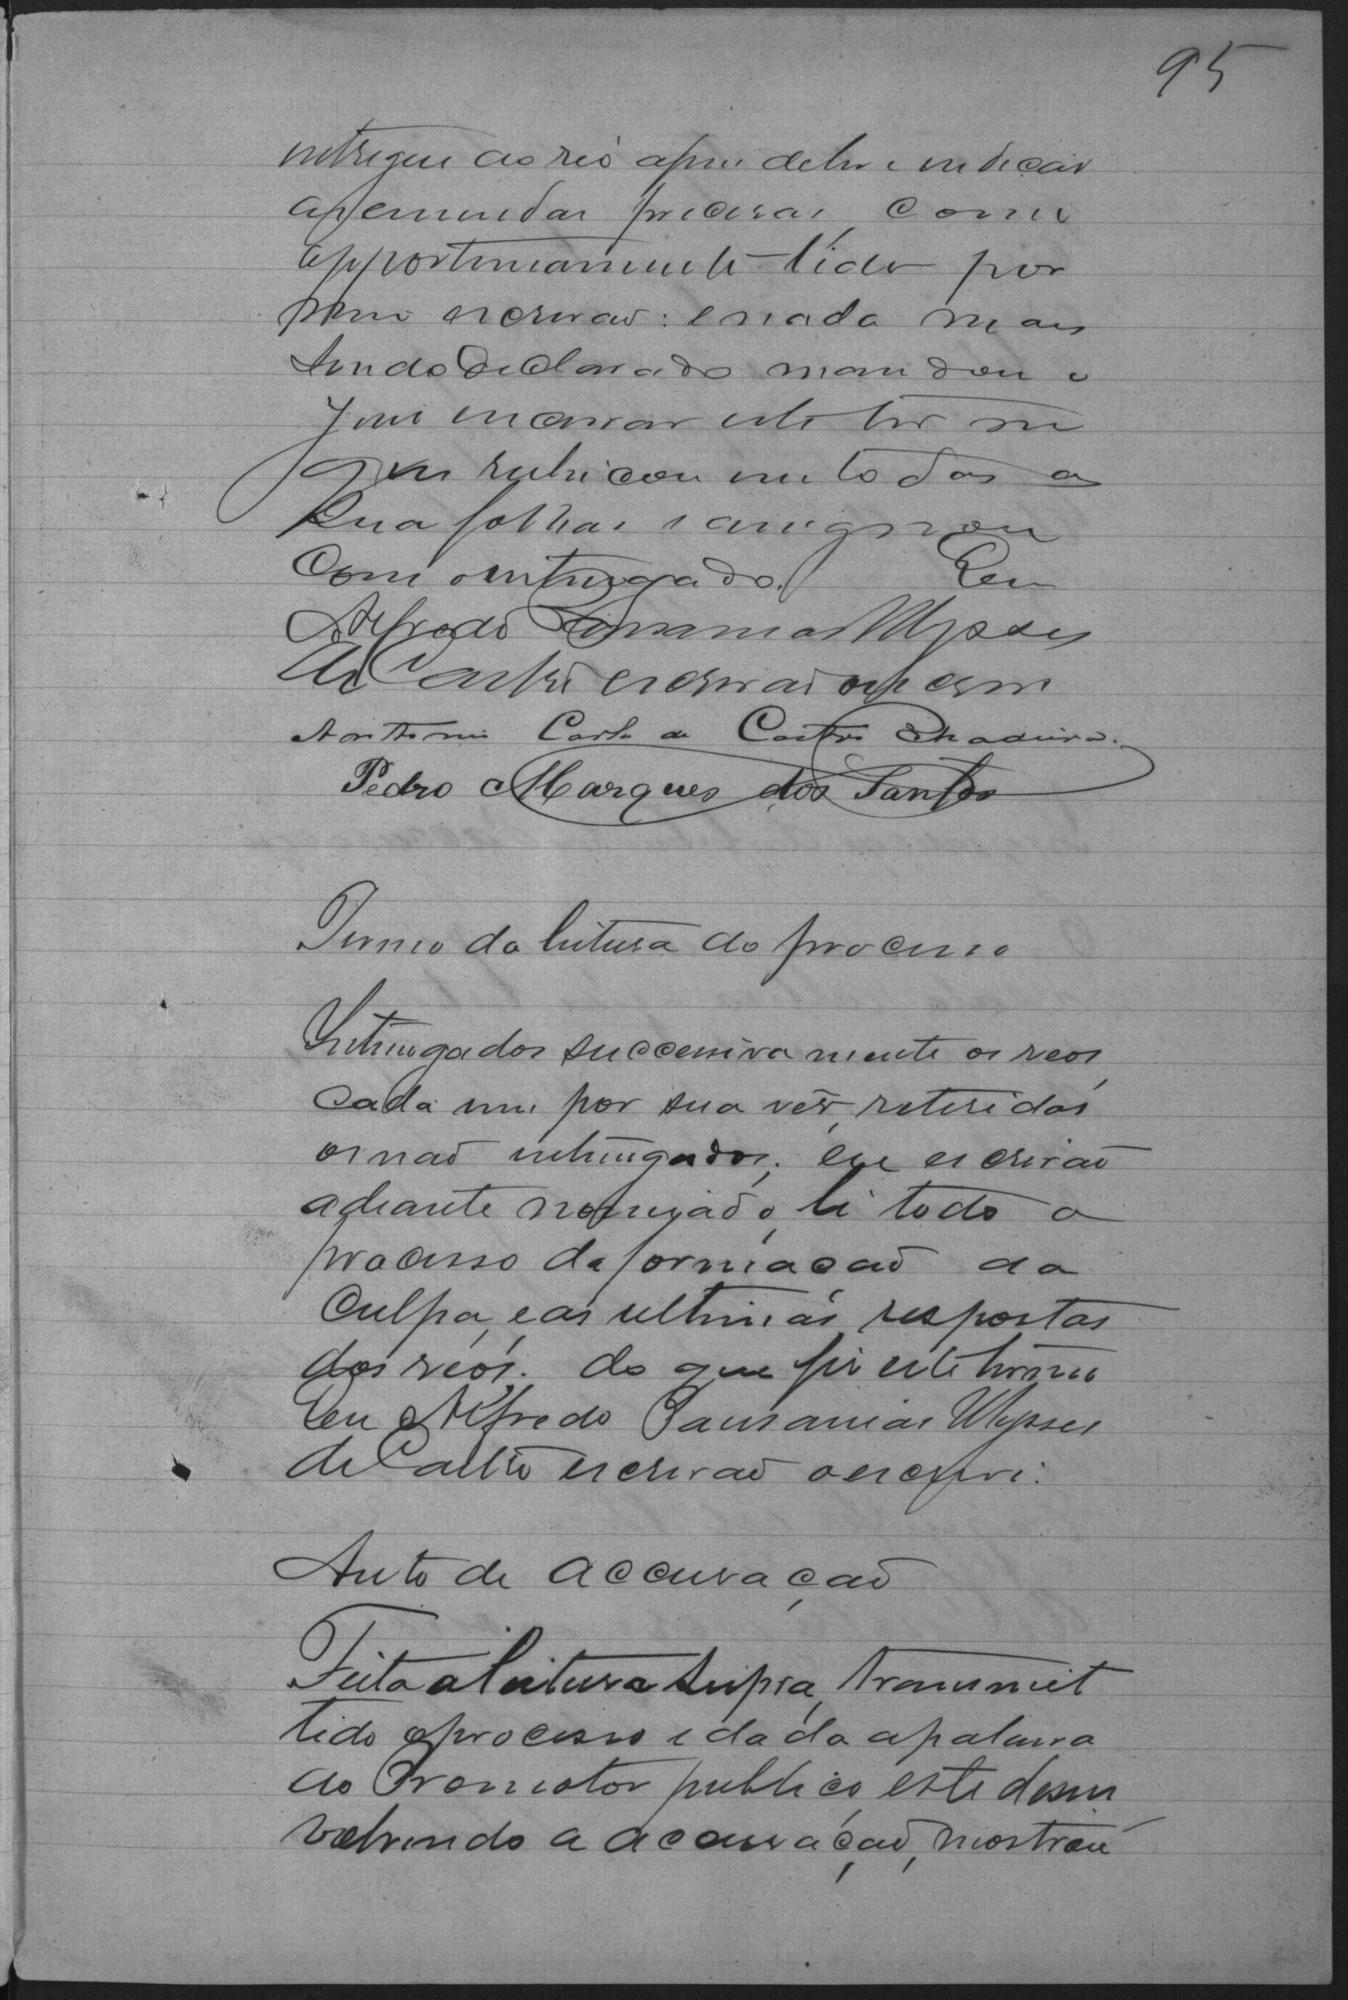 95
entregue ao réo apoz delle indicar
as emendas precisas, como
opportunamente lido por
mim escrivaõ: e nada mais
tendo declarado mandou o
Juiz encerrar este termo
que rubricou em todas as
sua folhas e assignou
com o interrogado. Eu
Alfredo Pausanias Ulysses
de Castro escrivaõ o escrevi
Antonio Carlos de Castro Madeira.
Pedro Marques dos Santos
Termo da leitura do processo
Interrogados successivamente os reos,
cada um por sua vêz, retiridos
os naõ interrogados, eu escrivaõ
adeante nomeiado, li todo o
processo da formaçaõ da
culpa, e as ultimas respostas
dos réos; do que fiz este termo
Eu Alfredo Pausanias Ulysses
de Castro escrivaõ o escrevi.
Auto de accusaçaõ
Feita a leitura supra, transmit
tido o processo e dada a palavra
ao Promotor publico, este desen
volvendo a accusaçaõ, mostrou